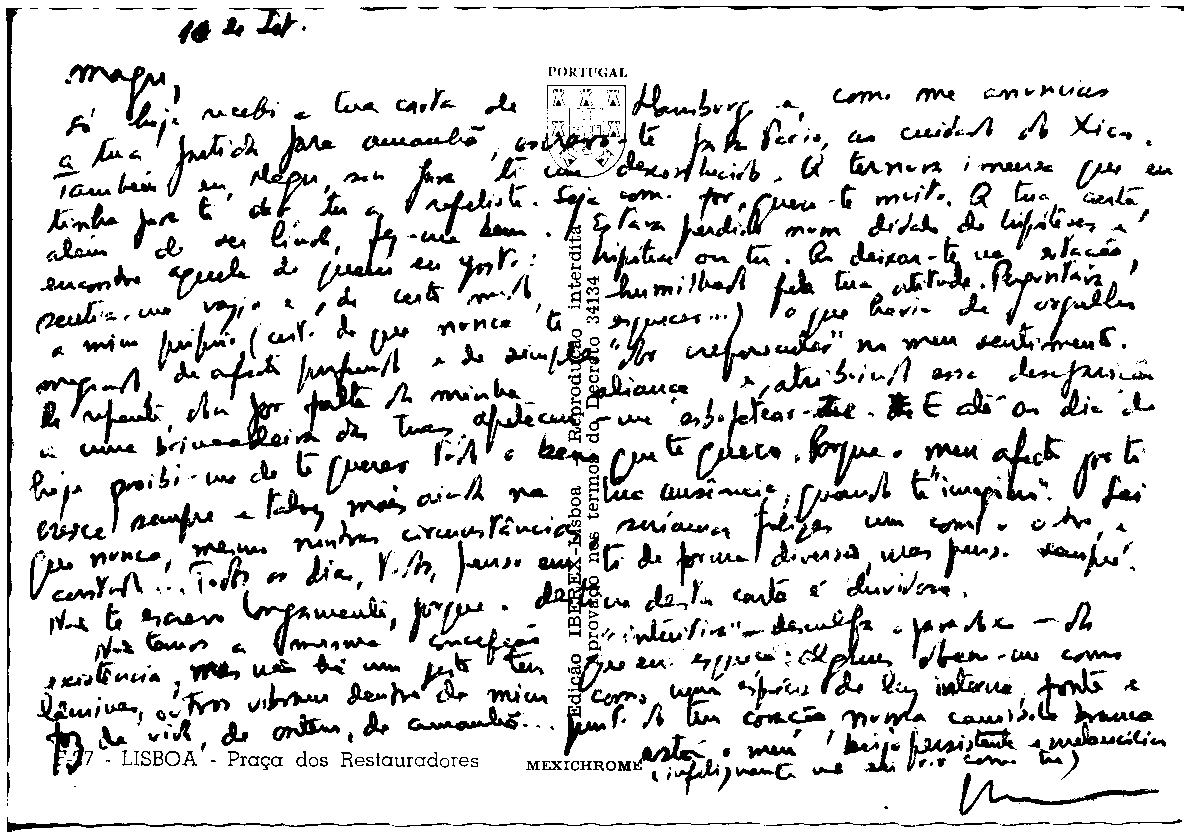 10 de Set.
Magu,
PORTUGAL
só hoje recebi a tua carta de Hamburg e, como me anuncias
a tua partida para amanhã, escrevo-te para Paris, ao cuidado do Xico.
Também eu, Magu, sou para ti um desconhecido. A ternura imensa que eu
tinha para te dar, tu a repeliste. Seja como for, quero-te muito. A tua carta,
além de ser linda, fez-me bem. Estava perdido num dédalo de hipóteses e
encontro aquela de quem eu gosto: hipótese ou tu. Ao deixar-te na estação,
sentia-me vazio e, de certo modo, humilhado pela tua atitude. Perguntava
a mim próprio (certo de que nunca te esquecas...) o que havia de orgulho
magoado, de afecto profundo e de simples "dor" no meu sentimento.
De repente, dou por falta da minha aliança e, atribuindo essa desaparição
a uma brincadeira das tuas, apeteceu-me esbofetear-te. E até ao dia de
hoje proibi-me de te querer todo o bem que te quero. Porque o meu afecto por ti
cresce sempre e talvez mais ainda na tua ausência, quando te "imagino". Sei
que nunca, mesmo noutras circunstâncias, seríamos felizes um com o outro, e
contudo... Todos os dias, todos, penso em ti de forma diversa, mas penso sempre.
Não te escrevo longamente, porque o destino desta carta é duvidoso.
Não temos a mesma concepção "intuitiva" - desculpa o paradoxo - da
existência, mas não há um gesto teu que eu esqueça: alguns doem-me como
lâminas, outros vibram dentro de mim como uma espécie de luz interna, fonte e
foz da vida, de ontem, de amanhã... junto do teu coração numa camisola branca
está o meu beijo persistente e melancólico
(infelizmente não sei rir como tu)
F-27 - LISBOA - Praça dos Restauradores
MEXICHROME
Edição IBEREX-Lisboa - Reprodução interdita
provação nos termos do Decreto 34134